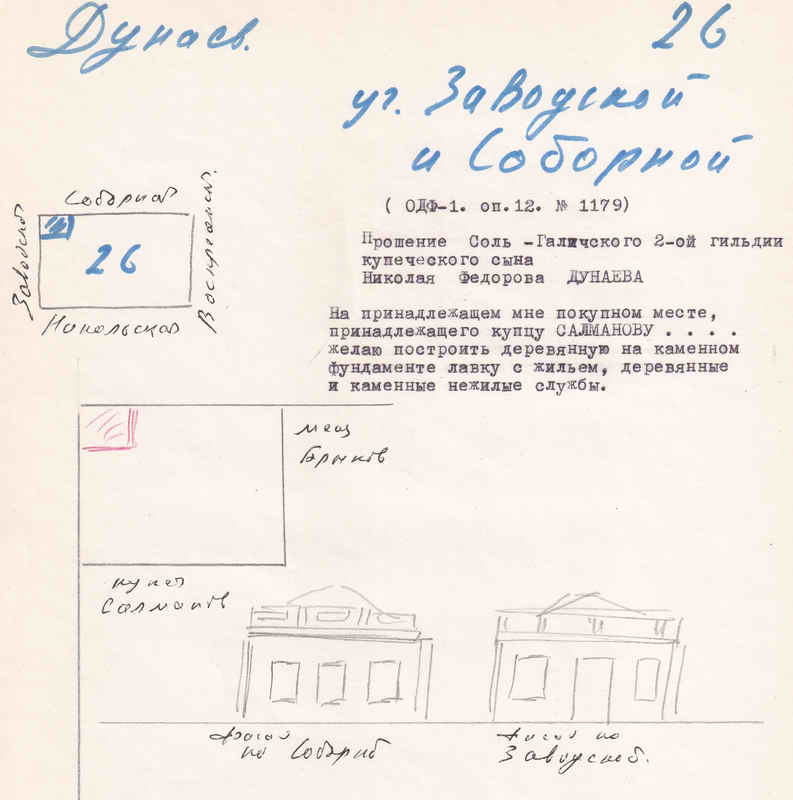 Дунаев.
26
уг. Заводской
и Соборной
Соборная
Заводская
26
Воскресенск.
Никольская
( ОДФ-1. оп.12. № 1179)
Прошение Соль -Галичского 2-ой гильдии
купеческого сына
Николая Федорова ДУНАЕВА
На принадлежащем мне покупном месте,
принадлежащего купцу САЛМАНОВУ . . . .
желаю построить деревянную на каменном
фундаменте лавку с жильем, деревянные
и каменные нежилые службы.
мещ
Брыков
купец
Салманов
фасад
по Соборной
фасад по
Заводской.